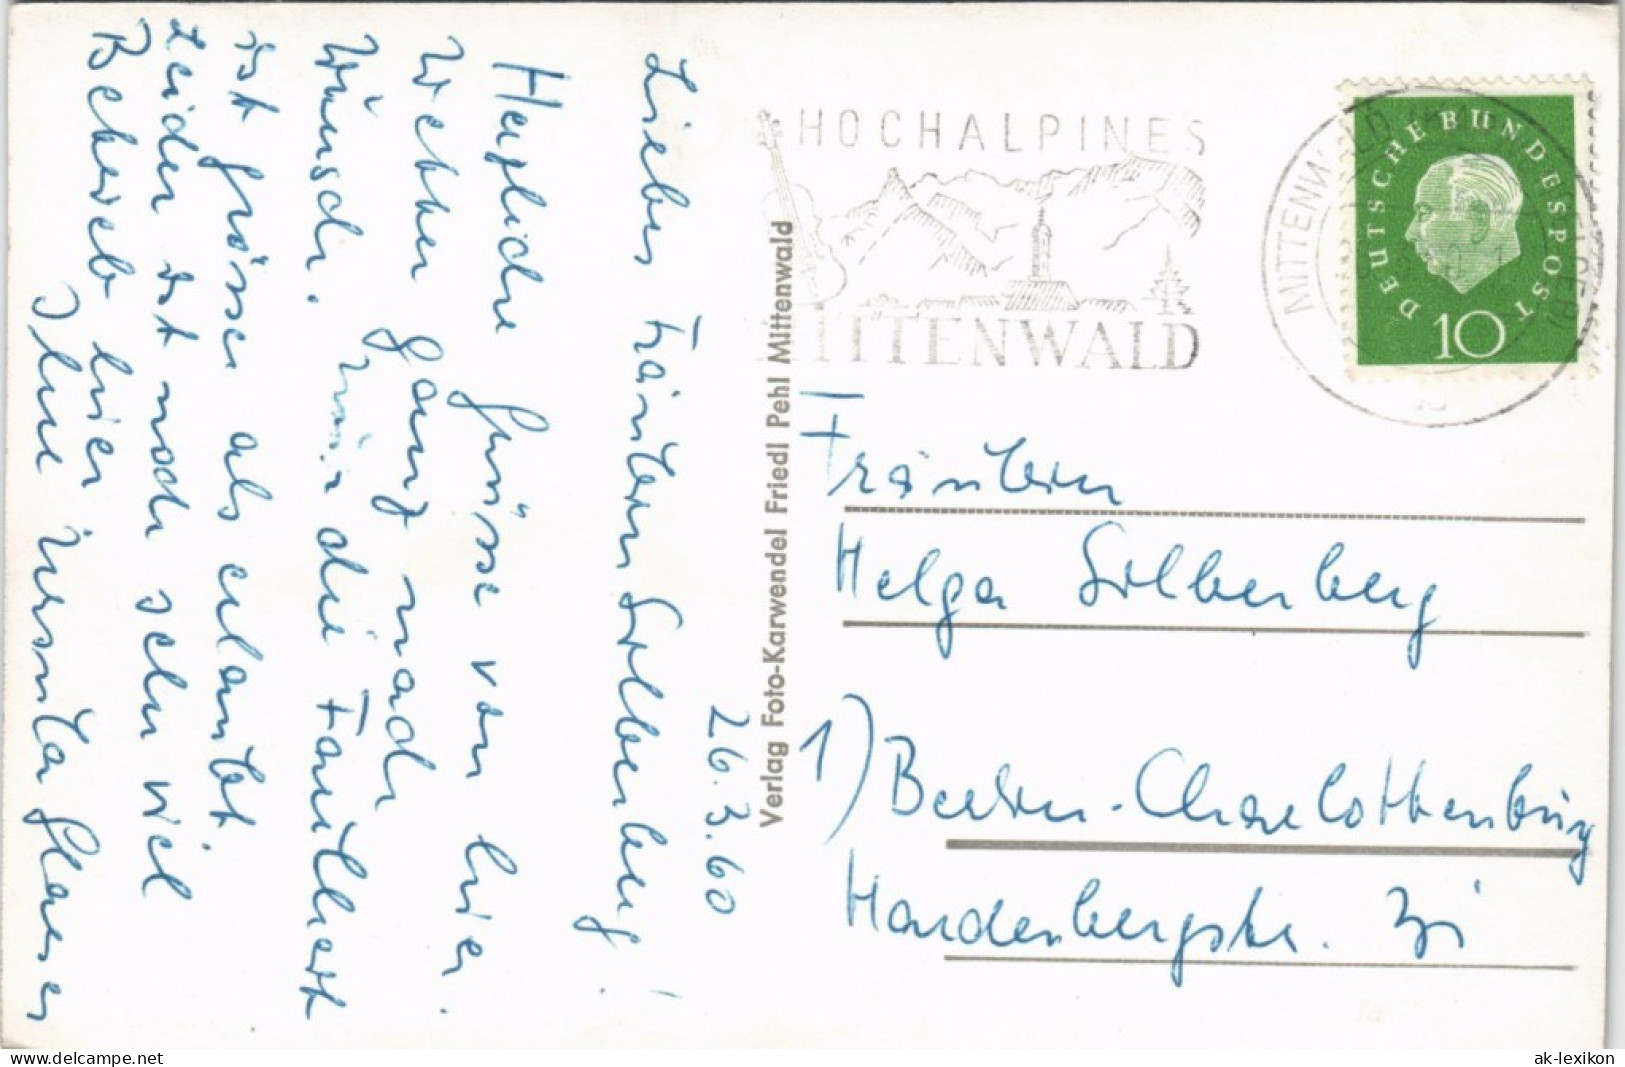 26.3.60
Liebes Fräulein Silberberg!
Herzliche Grüsse von hier.
Wetter ganz nach
Wunsch. Nur die Faulheit
ist grösser als erlaubt.
Leider ist noch sehr viel
Betrieb hier
Ihre Ursula Glaeser
Verlag Foto-Karwendel Friedl Pehl Mittenwald
HOCHALPINES
MITTENWALD
MITTENWALD
DEUTSCHE BUNDESPOST
10
Fräulein
Helga Silberberg
1) Berlin-Charlottenburg
Hardenbergstr.
ak-lexikon
www.delcampe.net